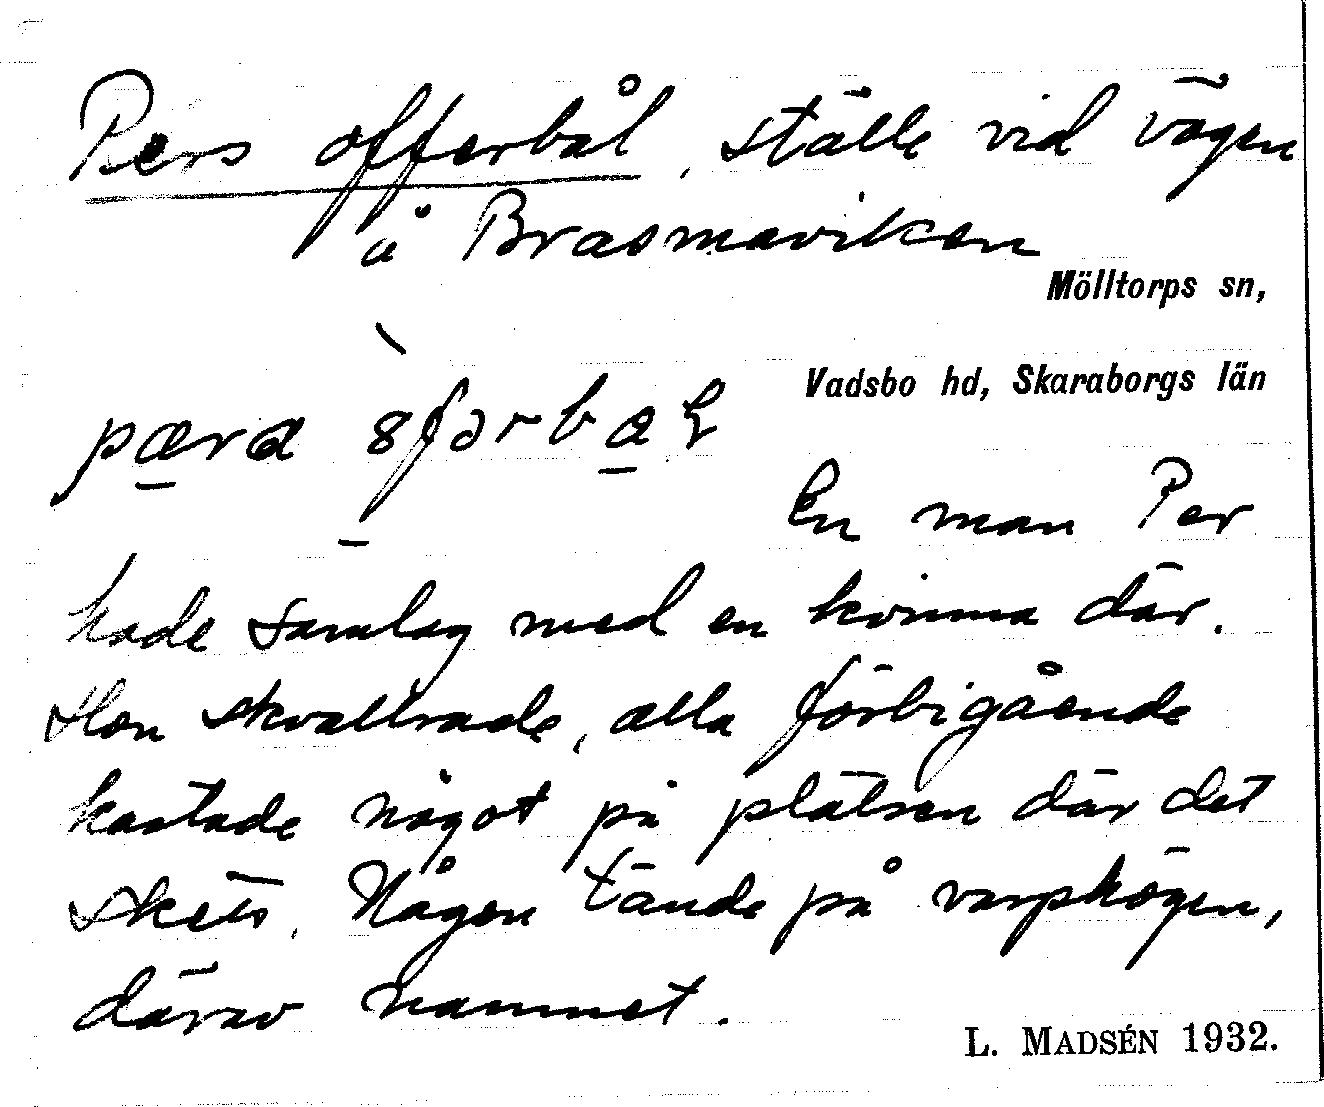 Pers offerbål, ställe vid vägen
å Brasmaviken
Mölltorps sn,
Vadsbo hd, Skaraborgs län
En man Per
hade samlag med en kvinna där.
Hon skvallrade, alla förbigående
kastade något på platsen där det
skets. Någon tände på varphögen,
därav namnet.
L. MADSÉN 1932.